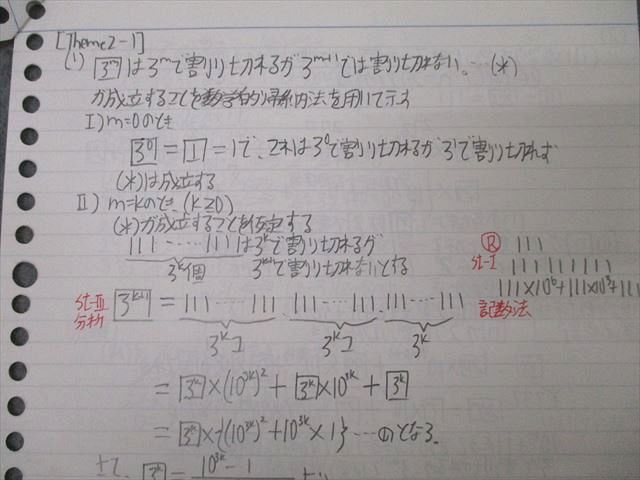 [Theme2-1]
(1) [3^m]は3^mで割り切れるが3^{m+1}では割り切れない。…(*)
が成立することを数学的帰納法を用いて示す
I) m=0のとき
[3^0] = [1] = 1で、これは3^0で割り切れるが3^1で割り切れず
(*)は成立する
II) m=kのとき、(k≧0)
(*)が成立することを仮定する
111-----111は3^kで割り切れるが
3^k個 3^{k+1}で割り切れないとする
R 111
St-I 111 111 111
111×10^6+111×10^3+111
記数法
St-III 分析
[3^{k+1}] = 111……111. 111……111. 111……111
3^kコ 3^kコ 3^k
= [3^k]×(10^{3k})^2 + [3^k]×10^{3k} + [3^k]
= [3^k]×{(10^{3k})^2+10^{3k}×1}…のとなる.
[3^k] = 10^{3k}-1